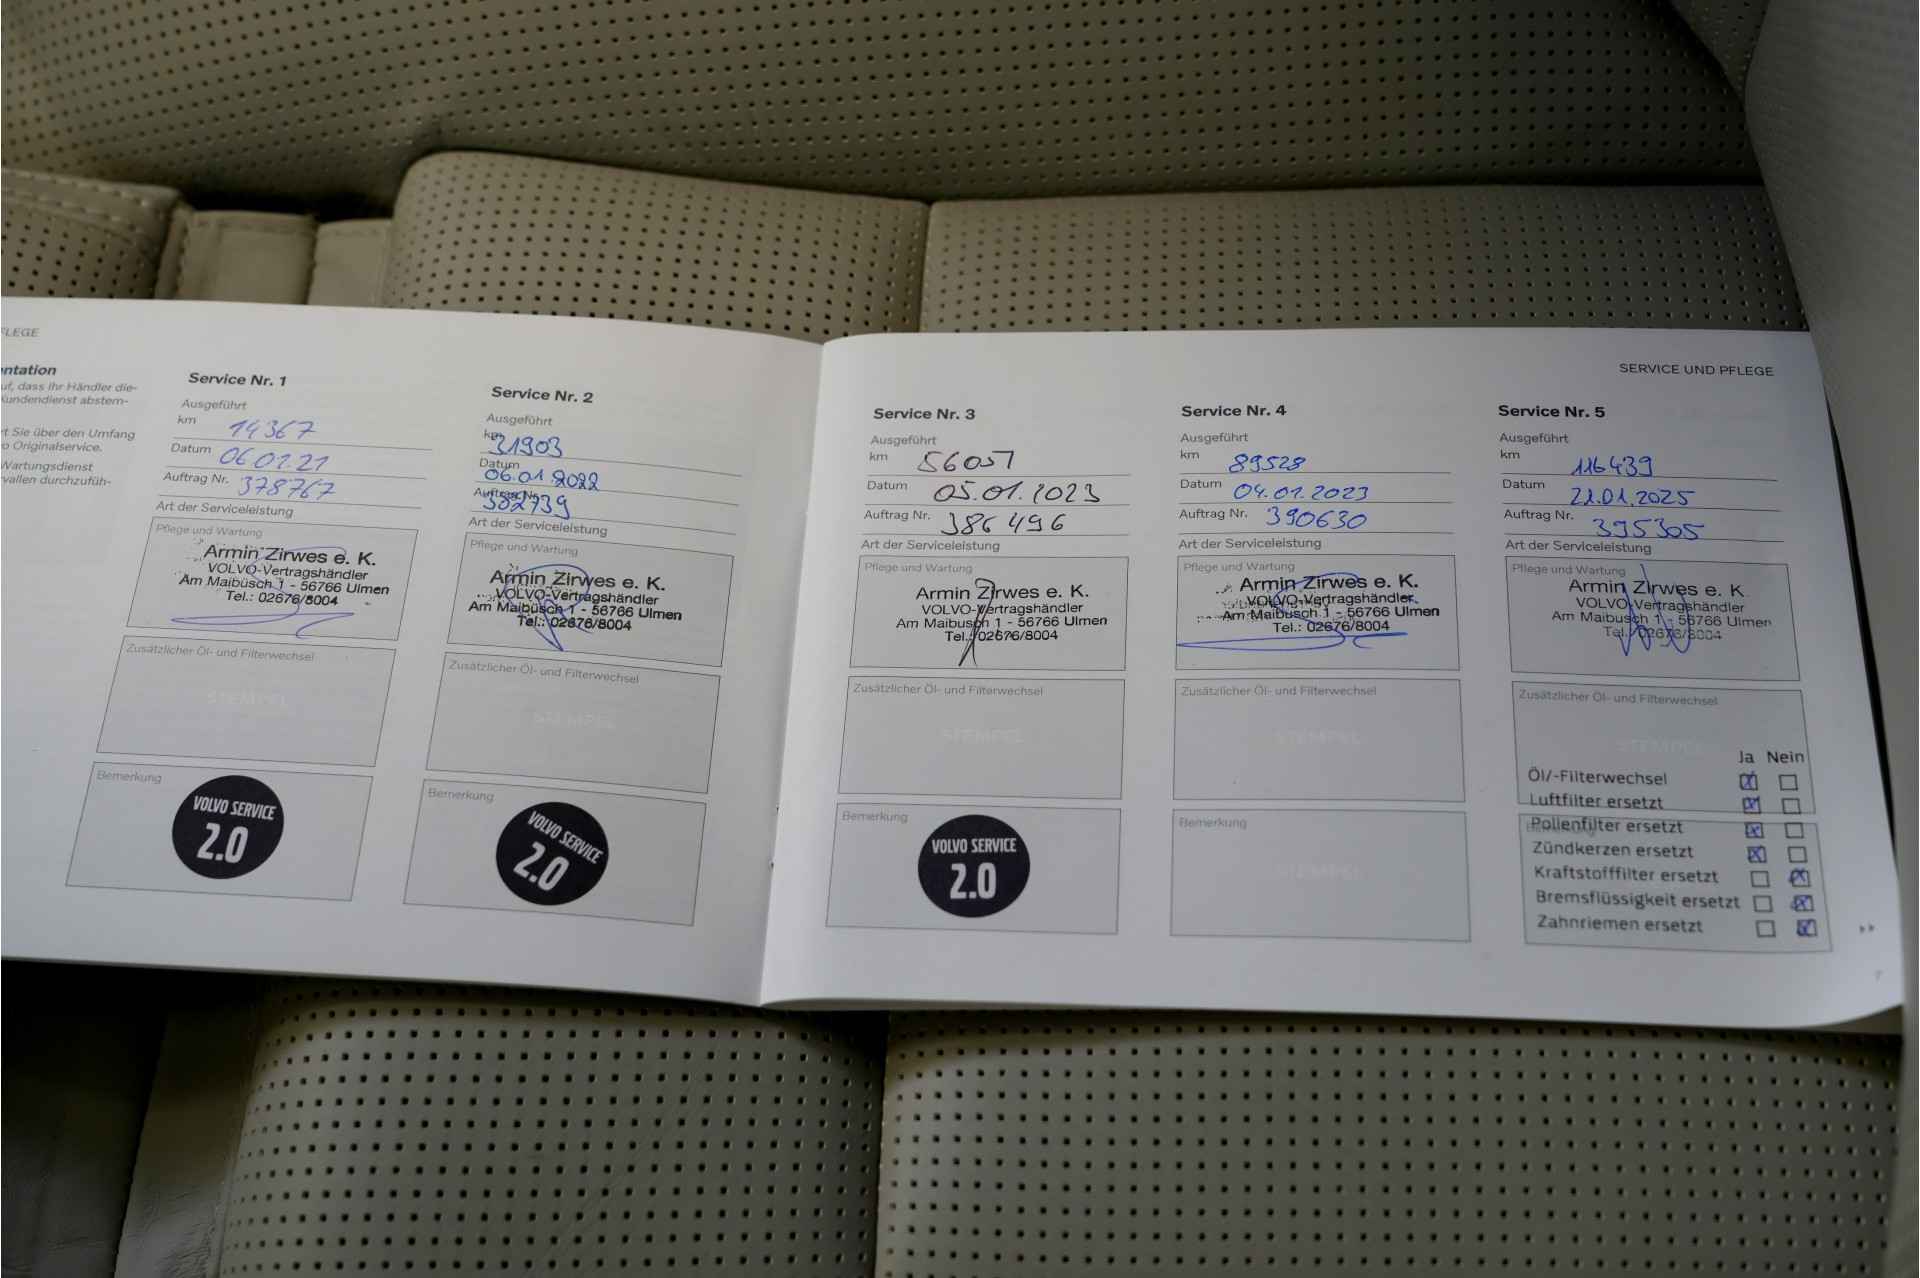 FLEGE
entation
uf, dass Ihr Händler die-
Kundendienst abstem-
rt Sie über den Umfang
o Originalservice.
Wartungsdienst
rvallen durchzufüh-
Service Nr. 1
Ausgeführt
km 14367
Datum 06.01.21
Auftrag Nr. 378767
Art der Serviceleistung
Pflege und Wartung
Armin Zirwes e. K.
VOLVO-Vertragshändler
Am Maibüsch 1 - 56766 Ulmen
Tel.: 02676/8004
Zusätzlicher Öl- und Filterwechsel
STEMPEL
Bemerkung
VOLVO SERVICE
2.0
Service Nr. 2
Ausgeführt
km 31903
Datum 06.01.2022
Auftrag Nr. 382739
Art der Serviceleistung
Pflege und Wartung
Armin Zirwes e. K.
VOLVO-Vertragshändler
Am Maibüsch 1 - 56766 Ulmen
Tel.: 02676/8004
Zusätzlicher Öl- und Filterwechsel
STEMPEL
Bemerkung
VOLVO SERVICE
2.0
SERVICE UND PFLEGE
Service Nr. 3
Ausgeführt
km 56051
Datum 05.01.2023
Auftrag Nr. 386496
Art der Serviceleistung
Pflege und Wartung
Armin Zirwes e. K.
VOLVO-Vertragshändler
Am Maibusch 1 - 56766 Ulmen
Tel.: 02676/8004
Zusätzlicher Öl- und Filterwechsel
STEMPEL
Bemerkung
VOLVO SERVICE
2.0
Service Nr. 4
Ausgeführt
km 89528
Datum 04.01.2023
Auftrag Nr. 390630
Art der Serviceleistung
Pflege und Wartung
Armin Zirwes e. K.
VOLVO-Vertragshändler
Am Maibusch 1 - 56766 Ulmen
Tel.: 02676/8004
Zusätzlicher Öl- und Filterwechsel
STEMPEL
Bemerkung
STEMPEL
Service Nr. 5
Ausgeführt
km 116439
Datum 21.01.2025
Auftrag Nr. 395305
Art der Serviceleistung
Pflege und Wartung
Armin Zirwes e. K.
VOLVO-Vertragshändler
Am Maibusch 1 - 56766 Ulmen
Tel. 02676/8004
Zusätzlicher Öl- und Filterwechsel
STEMPEL
Ja Nein
Öl/-Filterwechsel
Luftfilter ersetzt
Bemerkung
Pollenfilter ersetzt
Zündkerzen ersetzt
Kraftstofffilter ersetzt
Bremsflüssigkeit ersetzt
Zahnriemen ersetzt
7